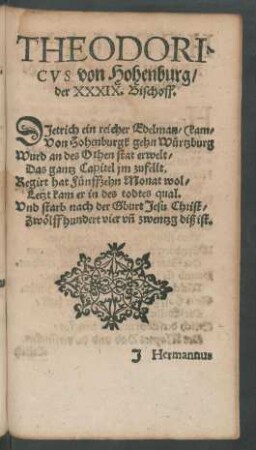 THEODORI-
CVS von Hohenburg/
der XXXIX. Bischoff.
DJetrich ein reicher Edelman/ (kam/
Von Hohenburgk gehn Würtzburg
Wurd an des Othen stat erwelt/
Das gantz Capitel jm zufellt.
Regirt hat Fünffzehn Monat wol/
Letzt kam er in des todtes qual.
Vnd starb nach der Gburt Jesu Christ/
Zwölffhundert vier vñ zwentzg diß ist.
J Hermannus